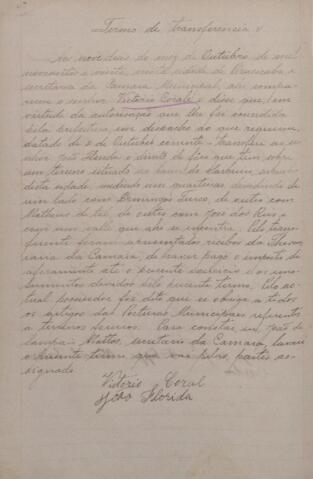 Termo de transferencia
Aos nove dias do mez de Outubro de mil
novecentos e vinte, nesta cidade de Piracicaba e
secretaria da Camara Municipal, ahi compa-
receu o senhor Victorio Coral e disse que, em
virtude da autorização que lhe foi concedida
pela Prefeitura, em despacho ao que requereu,
datado de 2 de Outubro corrente transferia ao se-
nhor João Florida o direito de fôro que tem sobre
um terreno situado no bairro do
desta cidade, medindo um quarteirão, dividindo de
um lado com Domingos Turco, de outro com
Mathias de tal, de outro com José dos Reis e
com um valle que ahi se encontra. Pelo trans-
ferente foram apresentados recibos da Thesou-
raria da Camara, de haver pago o imposto de
aforamento até o presente exercicio e os emo-
lumentos devidos pelo presente termo. Pelo ac-
tual possuidor foi dito que se obriga a todos
os artigos das Posturas Municipaes referentes
a terrenos foreiros. Para constar, eu, João de
Sampaio Mattos, secretario da Camara, lavrei
o presente termo que vai pelas partes as-
signado.
Vitorio Coral
João Florida